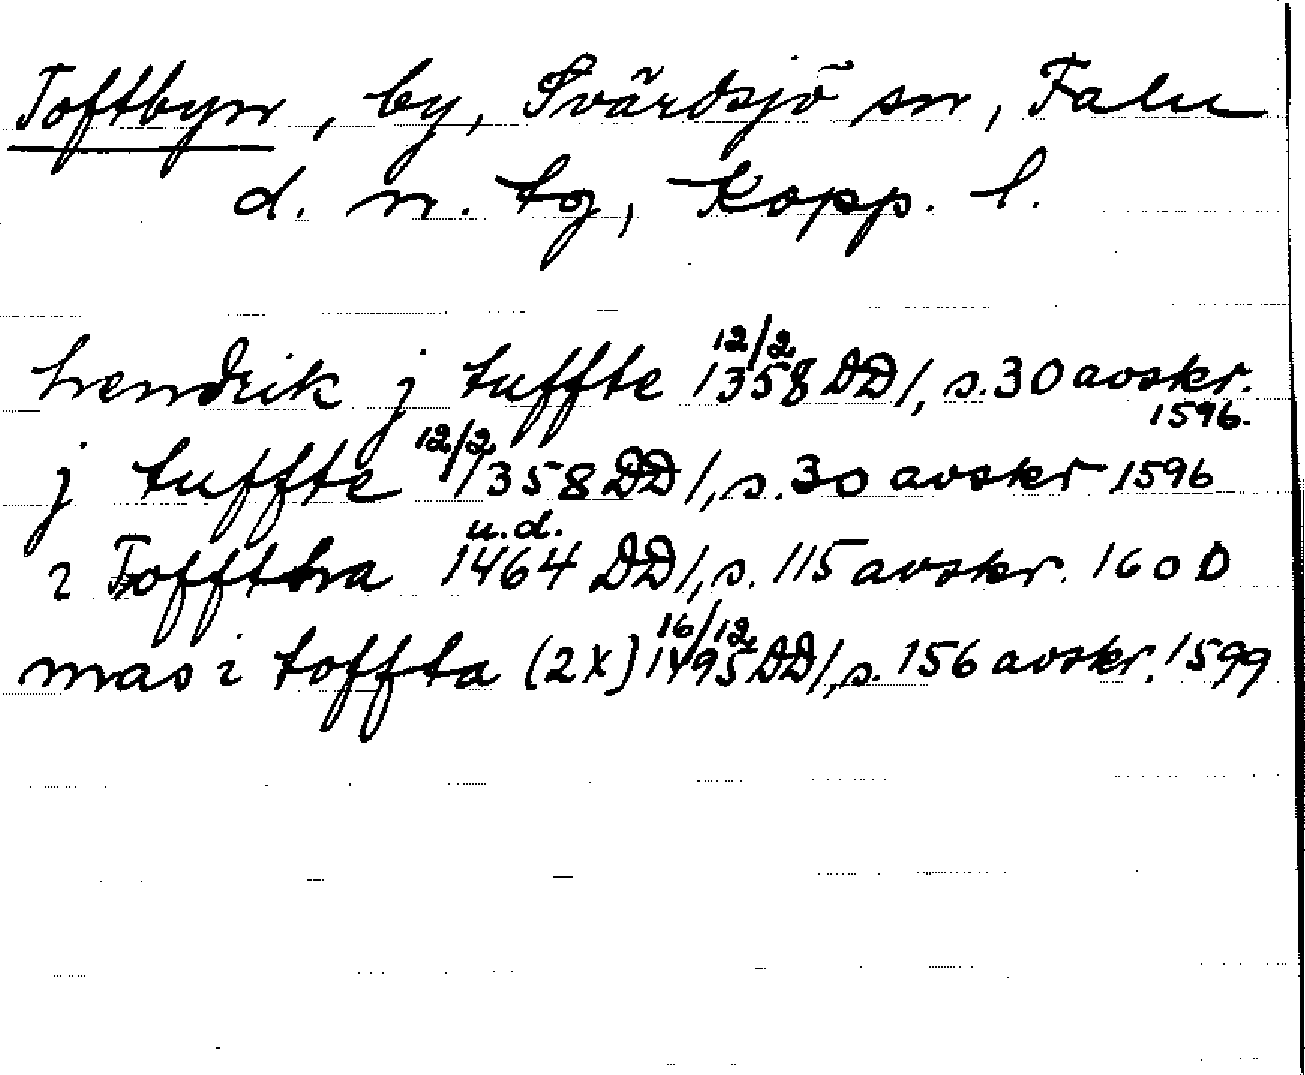 Toftbyn, by, Svärdsjö sn, Falu
d. n. tg, Kopp. l.
hendrik j tuffte 12/2 1358 DD 1, s. 30 avskr. 1596.
j tuffte 12/2 1358 DD 1, s. 30 avskr 1596
i Toffthra u.d. 1464 DD 1, s. 115 avskr. 1600
mas i toffta (2x) 16/12 1495 DD 1, s. 156 avskr. 1599